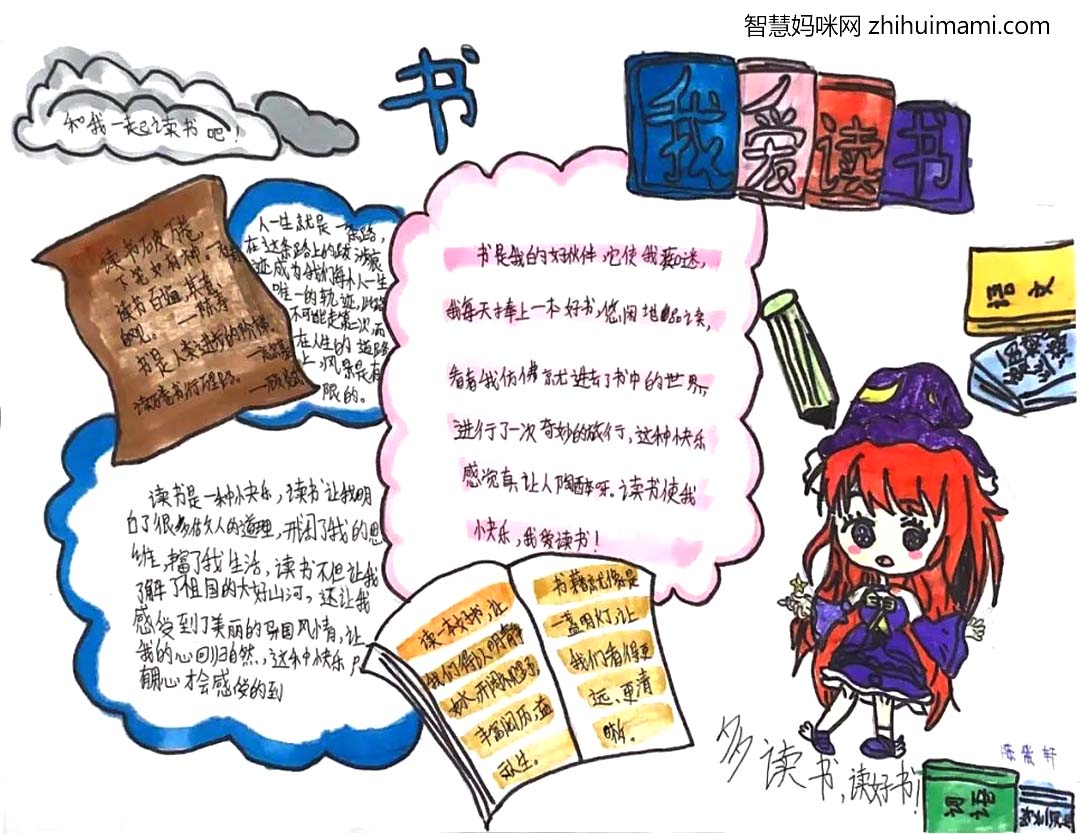 智慧妈咪网 zhihuimami.com
书
我爱读书
和我一起读书吧！
读书破万卷，
下笔如有神。
读书百遍，其意
自见。
书是人类进步的阶梯。
人一生就是一条路，
在这条路上的跋涉痕
迹成为我们每个人一生
唯一的轨迹，此路
不可能走第二次，而
在人生的道路
上，风景是有
限的。
书是我的好伙伴，它使我痴迷，
我每天捧上一本好书，悠闲地品读，
看着我仿佛就进去了书中的世界，
进行了一次奇妙的旅行，这种快乐
感觉真让人陶醉呀。读书使我
快乐，我爱读书！
读书是一种快乐，读书让我明
白了很多做人的道理，开阔了我的思
维，丰富了我生活，读书不但让我
了解了祖国的大好山河，还让我
感受到了美丽的异国风情，让
我的心回归自然，这种快乐只
有用心才会感受的到
读一本好书，让
我们得以明净
如水，开阔
丰富阅历，益
于人生。
书籍就像是
一盏明灯，让
我们看得更
远、更清
晰。
语文
多读书，读好书！
词语